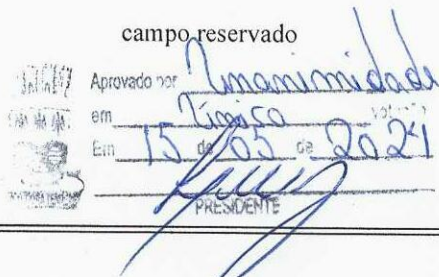 campo reservado
Aprovado por Unanimidade
em Única votação
Em 15 de 05 de 2021
PRESIDENTE